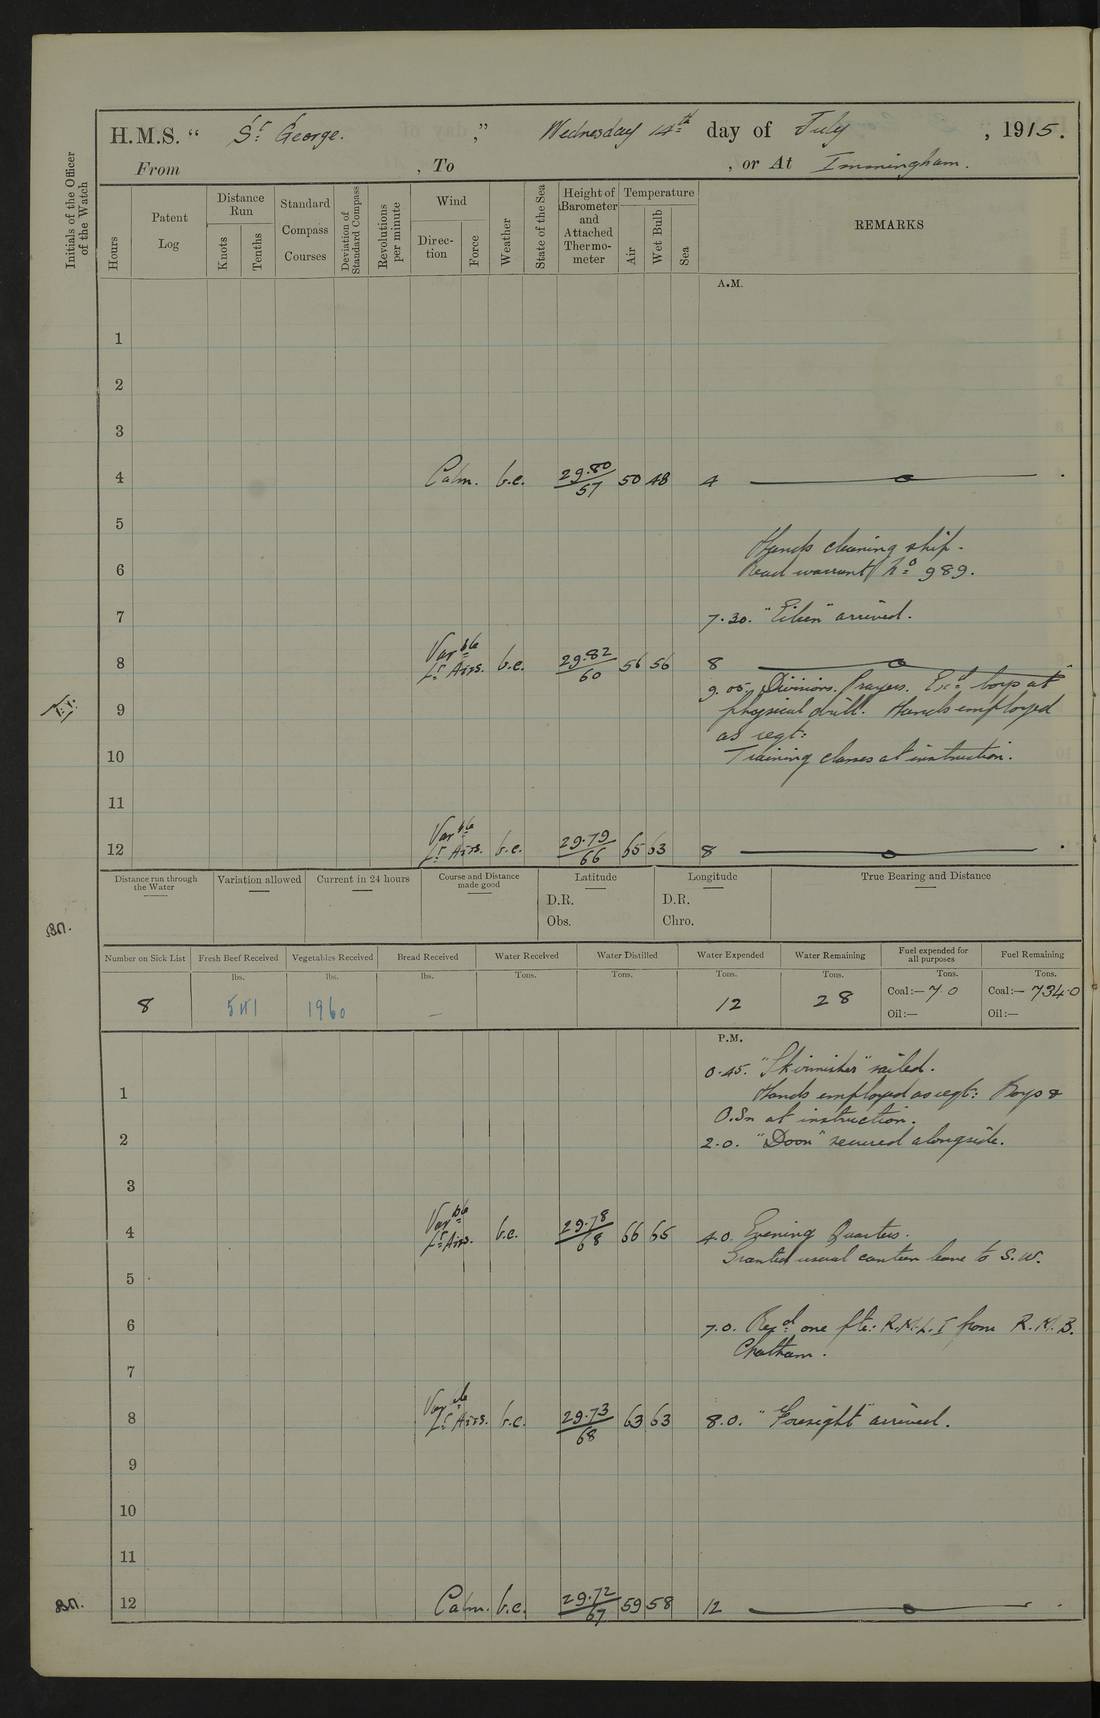 H.M.S. " St George. ," Wednesday 14th day of July , 1915.
From , To , or At Immingham.
Initials of the Officer of the Watch
Hours
Patent Log
Distance Run
Knots
Tenths
Standard Compass Courses
Deviation of Standard Compass
Revolutions per minute
Wind
Direc-tion
Force
Weather
State of the Sea
Height of Barometer and Attached Thermo-meter
Temperature
Air
Wet Bulb
Sea
REMARKS
A.M.
1
2
3
4 Calm. b.c. 29.80/57 50 48 4
5
Hands cleaning ship.
6 Read warrant No 989.
7 7.30. "Eileen" arrived.
8 Varble Lt Airs. b.c. 29.82/60 56 56 8
9.05. Divisions. Prayers. Exd boys at
9 physical drill. Hands employed
as reqt:
10 Training classes at instruction.
11
12 Varble Lt Airs. b.c. 29.79/66 65 63 8
Distance run through the Water
Variation allowed
Current in 24 hours
Course and Distance made good
Latitude
D.R.
Obs.
Longitude
D.R.
Chro.
True Bearing and Distance
B.N.
Number on Sick List
Fresh Beef Received
Vegetables Received
Bread Received
Water Received
Water Distilled
Water Expended
Water Remaining
Fuel expended for all purposes
Fuel Remaining
lbs. lbs. lbs. Tons. Tons. Tons. Tons. Tons. Tons.
8 541 1960 – 12 28 Coal:— 70 Coal:— 734.0
Oil:— Oil:—
P.M.
0.45. "Skirmisher" sailed.
1 Hands employed as reqt: Boys &
O.Sn at instruction.
2 2.0. "Doon" secured alongside.
3
4 Varble Lt Airs. b.c. 29.78/68 66 65 4.0. Evening Quarters.
Granted usual canteen leave to S.W.
5
6 7.0. Recd one pte: R.M.L.I from R.M.B.
Chatham.
7
8 Varble Lt Airs. b.c. 29.73/68 63 63 8.0. "Foresight" arrived.
9
10
11
12 Calm. b.c. 29.72/67 59 58 12
B.N.